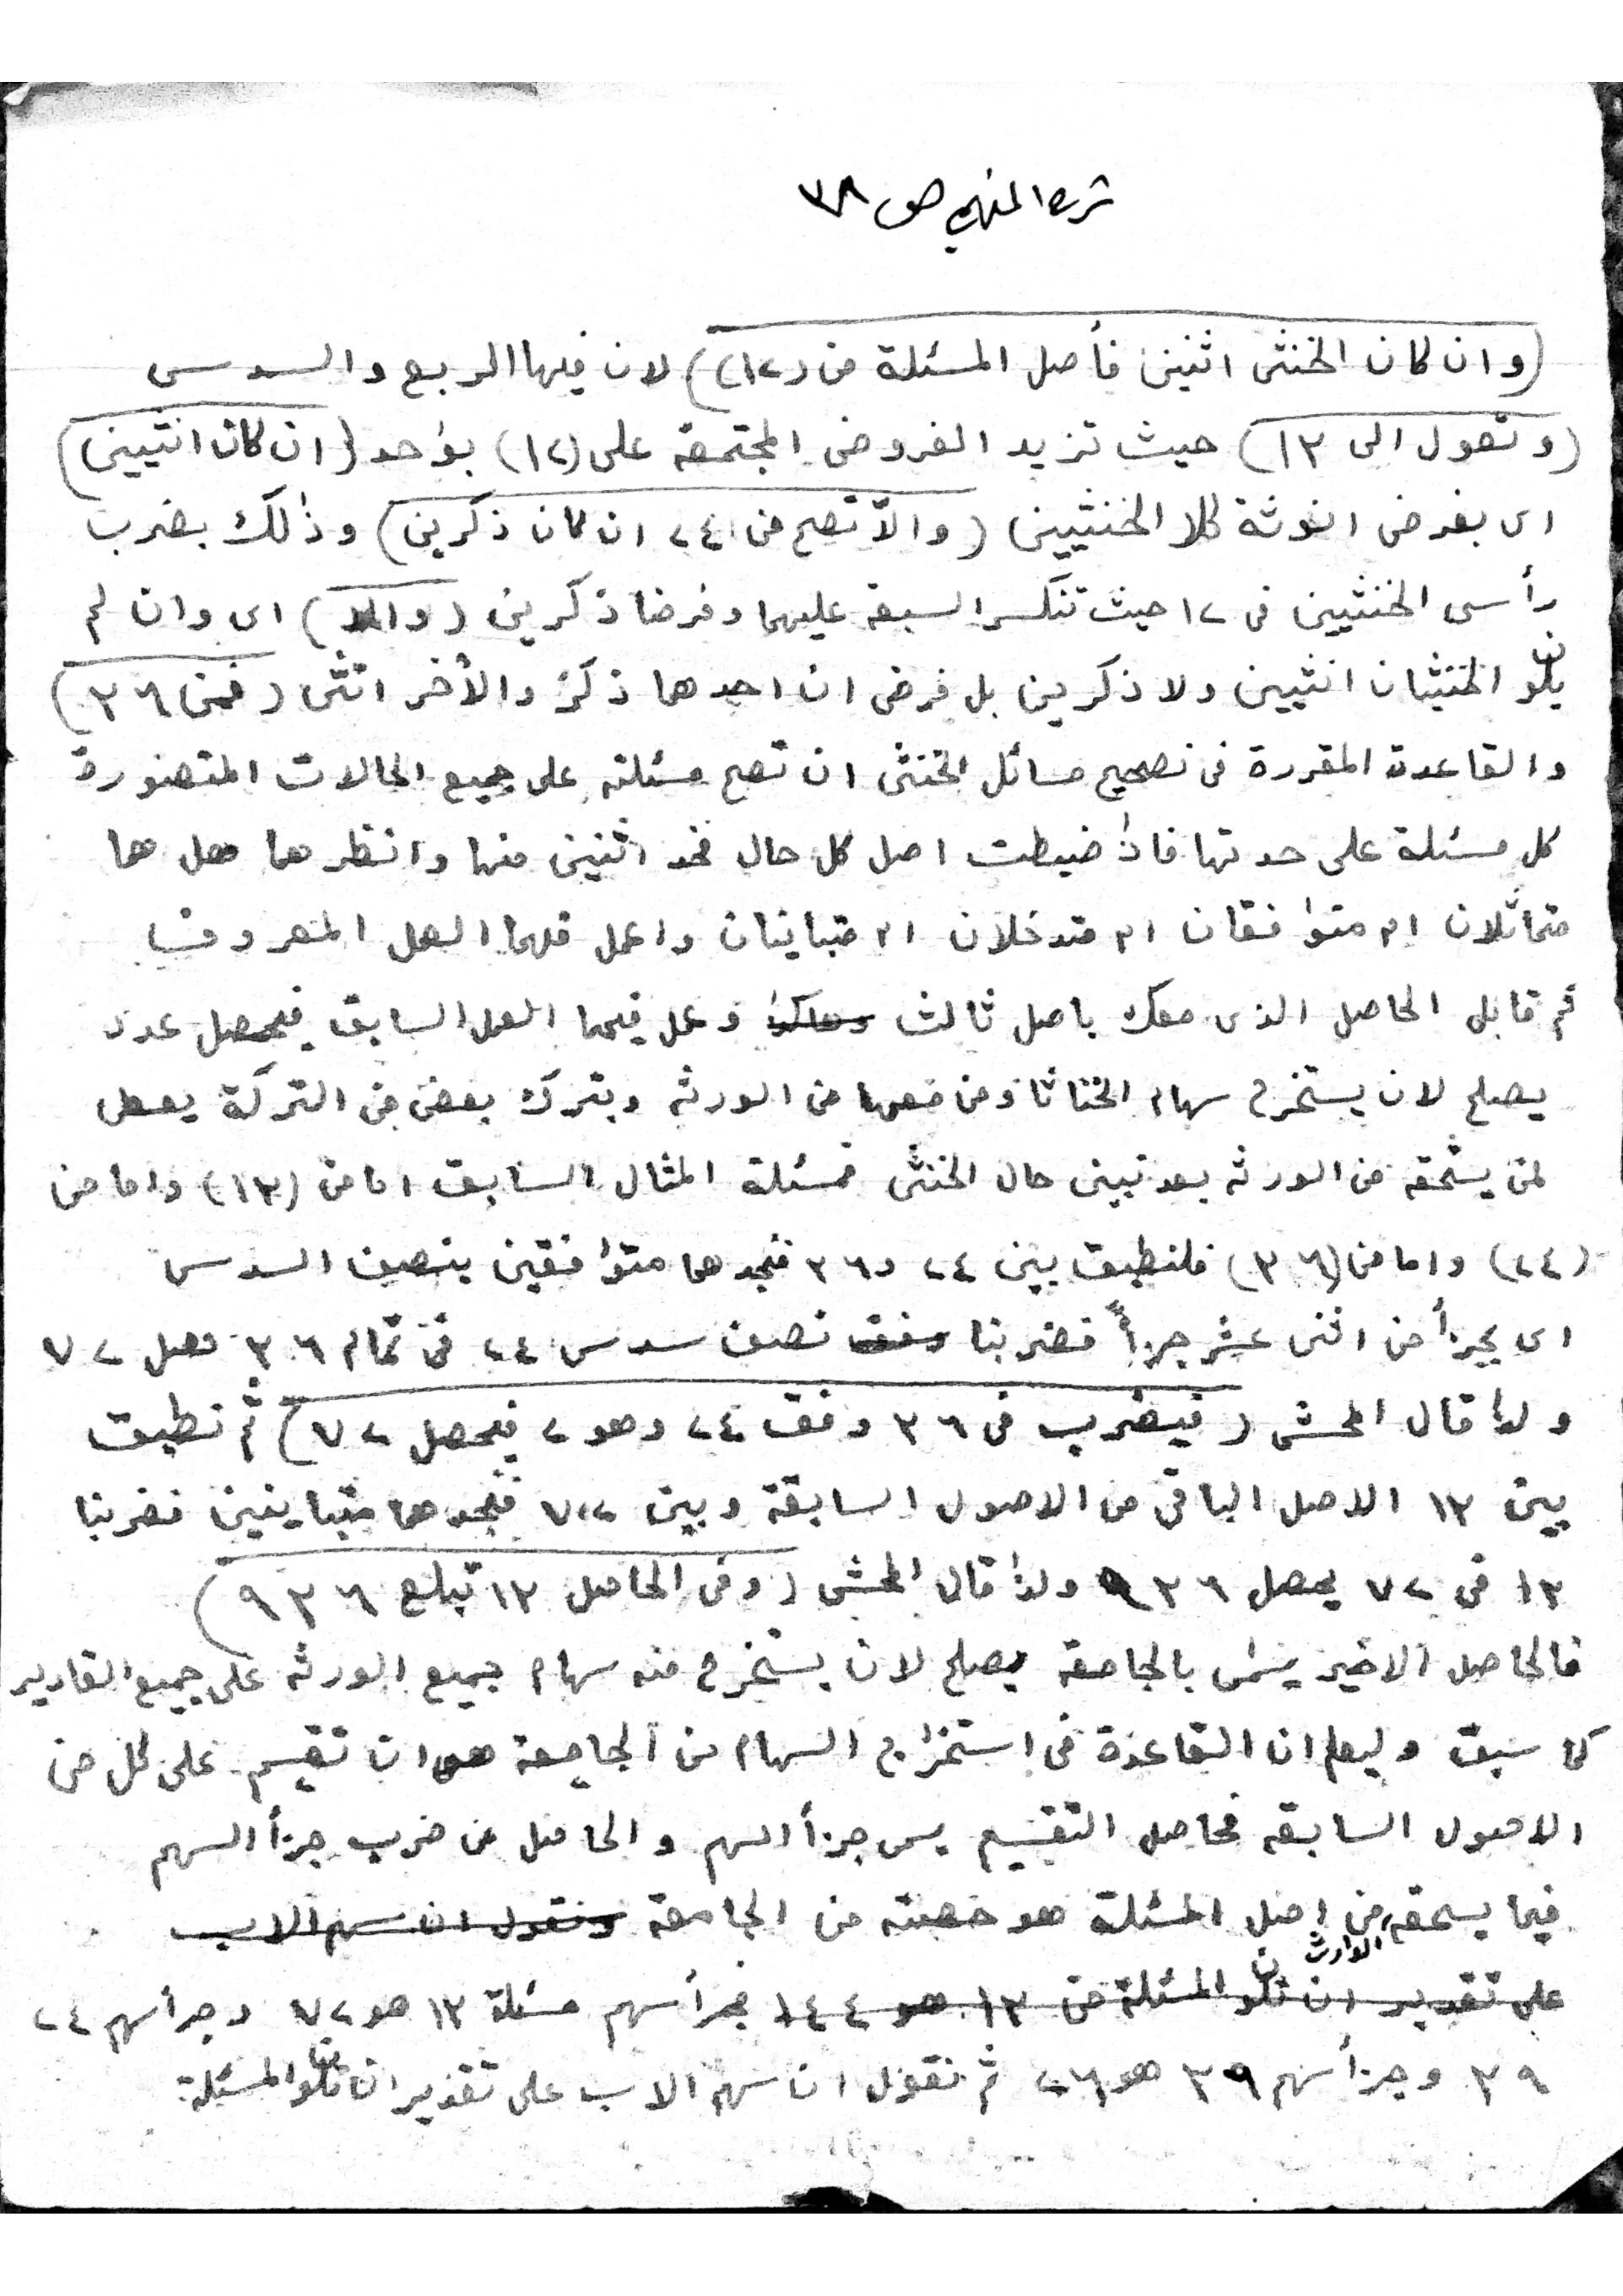 شرح المنهج ص ٣٨
(وان كان الخنثى اثنين فأصل المسئلة من (١٢)) لان فيها الربع والسدس
(وتعول الى ١٣) حيث تزيد الفروض المجتمعة على (١٢) بواحد (ان كان انثيين)
اى بفرض انوثة كلا الخنثيين (والاّ تصح من ٢٤ ان كان ذكرين) وذلك بضرب
رأسى الخنثيين فى ١٢ حيث تنكسر السبعة عليهما وفرضا ذكرين (والا) اى وان لم
يكن الخنثيان انثيين ولا ذكرين بل فرض ان احدهما ذكر والأخر انثى (فمن ٣٦)
والقاعدة المقررة فى تصحيح مسائل الخنثى ان تصح مسئلته على جميع الحالات المتصورة
كل مسئلة على حدتها فاذا ضبطت اصل كل حال فخذ اثنين منها وانظرهما هل هما
متماثلان ام متوافقان ام متدخلان ام متباينان واعمل فيهما العمل المعروف
ثم قابل الحاصل الذى معك باصل ثالث وعمل فيهما العمل السابق فيحصل عدد
يصلح لان يستخرج سهام الخناثا ومن معهما من الورثه ويترك بعض من التركة يعطى
لمن يستحقه من الورثه بعد تبين حال الخنثى فمسئلة المثال السابق اما من (١٣) واما من
(٢٤) واما من (٣٦) فلنطبق بين ٢٤ و٣٦ فنجدهما متوافقين بنصف السدس
اى بجزأ من اثنى عشر جزأً فضربنا وفق نصف سدس ٢٤ فى تمام ٣٦ حصل ٧٢
ولذا قال المحشى (فيضرب فى ٣٦ وفق ٢٤ وهو ٢ فيحصل ٧٢) ثم نطبق
بين ١٣ الاصل الباقى من الاصول السابقة وبين ٧٢ فنجدهما متباينين فضربنا
١٣ فى ٧٢ يحصل ٩٣٦ ولذا قال المحشى (وفى الحاصل ١٣ تبلغ ٩٣٦)
فالحاصل الاخير يسمى بالجامعة يصلح لان يستخرج منه سهام جميع الورثه على جميع القادير
كما سبق وليعلم ان القاعدة فى استخراج السهام من الجامعة هو ان تقسم على كل من
الاصول السابقه فحاصل التقسيم يسمى جزأ السهم والحاصل من ضرب جزأ السهم
فيما يستحقه الوارث من اصل المسئلة هو حصته من الجامعة ونقول ان سهم الاب
على تقدير ان تكون المسئلة من ١٣ هو ١٤٤ فجزأ سهم مسئلة ١٣ هو ٧٢ وجزأ سهم ٢٤
٣٩ وجزأ سهم ٣٩ هو ٢٦ ثم نقول ان سهم الاب على تقدير ان تكون المسئلة